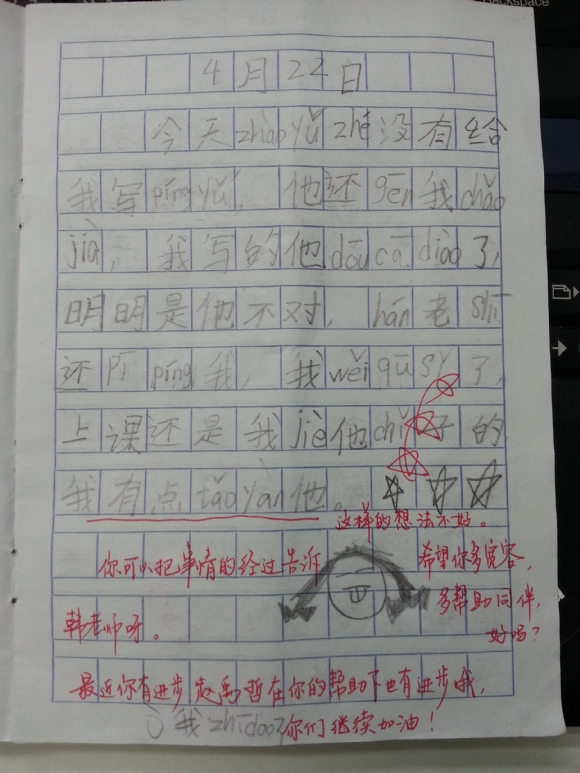 Backspace
4月24日
今天zhàoyǔ zhé没有给
我写píngyǔ,他还gēn我chǎo
jià,我写的他dōu cā diào了,
明明是他不对,hán老shī
还pī píng我,我wěi qū sǐ了,
上课还是我jiè他chǐ子的
我有点tǎo yàn他。
这样的想法不好。
你可以把事情的经过告诉
韩老师呀。
希望你多宽容,
多帮助同伴,
好吗?
最近你有进步,赵禹哲在你的帮助下也有进步哦,
我zhīdào了
你们继续加油!